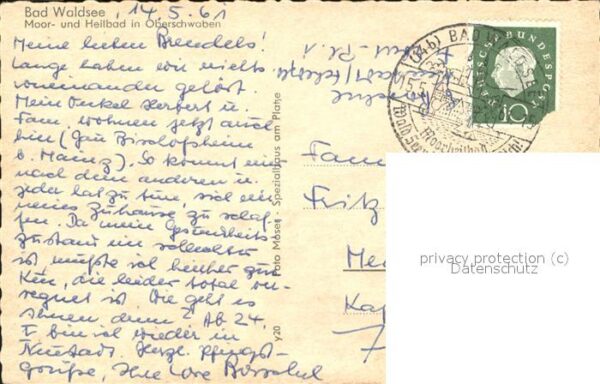 Bad Waldsee
Moor- und Heilbad in Oberschwaben
14.5.61
Meine lieben Brendels!
Lange haben wir nichts
voneinander gehört.
Mein Onkel Herbert u.
Fam. wohnen jetzt auch
hier (Gau Bischofsheim
b. Mainz). So kommt ein
nach dem anderen u.
jeder hat zu tun, sich ein
neues Zuhause zu schaf-
fen. Da mein Gesundheits-
zustand im
ist, mußte ich hierher zur
Kur, die leider total ver-
regnet ist. Wie geht es
Ihnen denn? Ab 24.
5. bin ich wieder in
Neustadt. Herzl. Pfingst-
grüße, Ihre Lore
Foto Moser - Spezialhaus am Platze
y20
(14b) BAD WALDSEE
15.5.
Moorheilbad
DEUTSCHE BUNDESPOST
10
Fam
Fritz
privacy protection (c)
Datenschutz